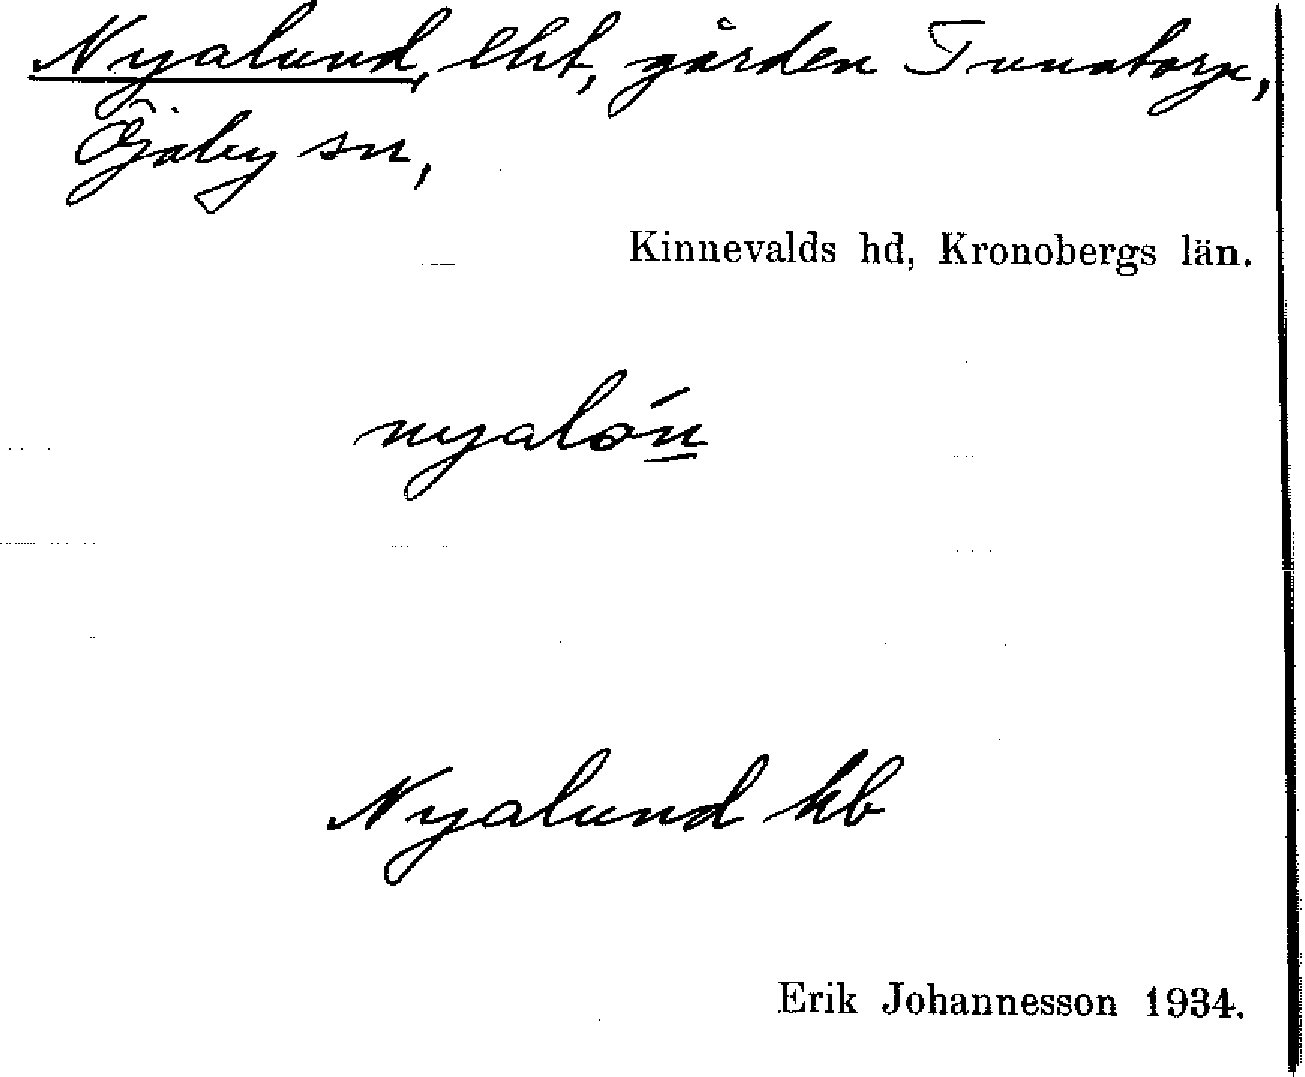 Nyalund, lht, gården Tunatorp,
Öjaby sn,
Kinnevalds hd, Kronobergs län.
nyaló̱n
Nyalund kb
Erik Johannesson 1934.